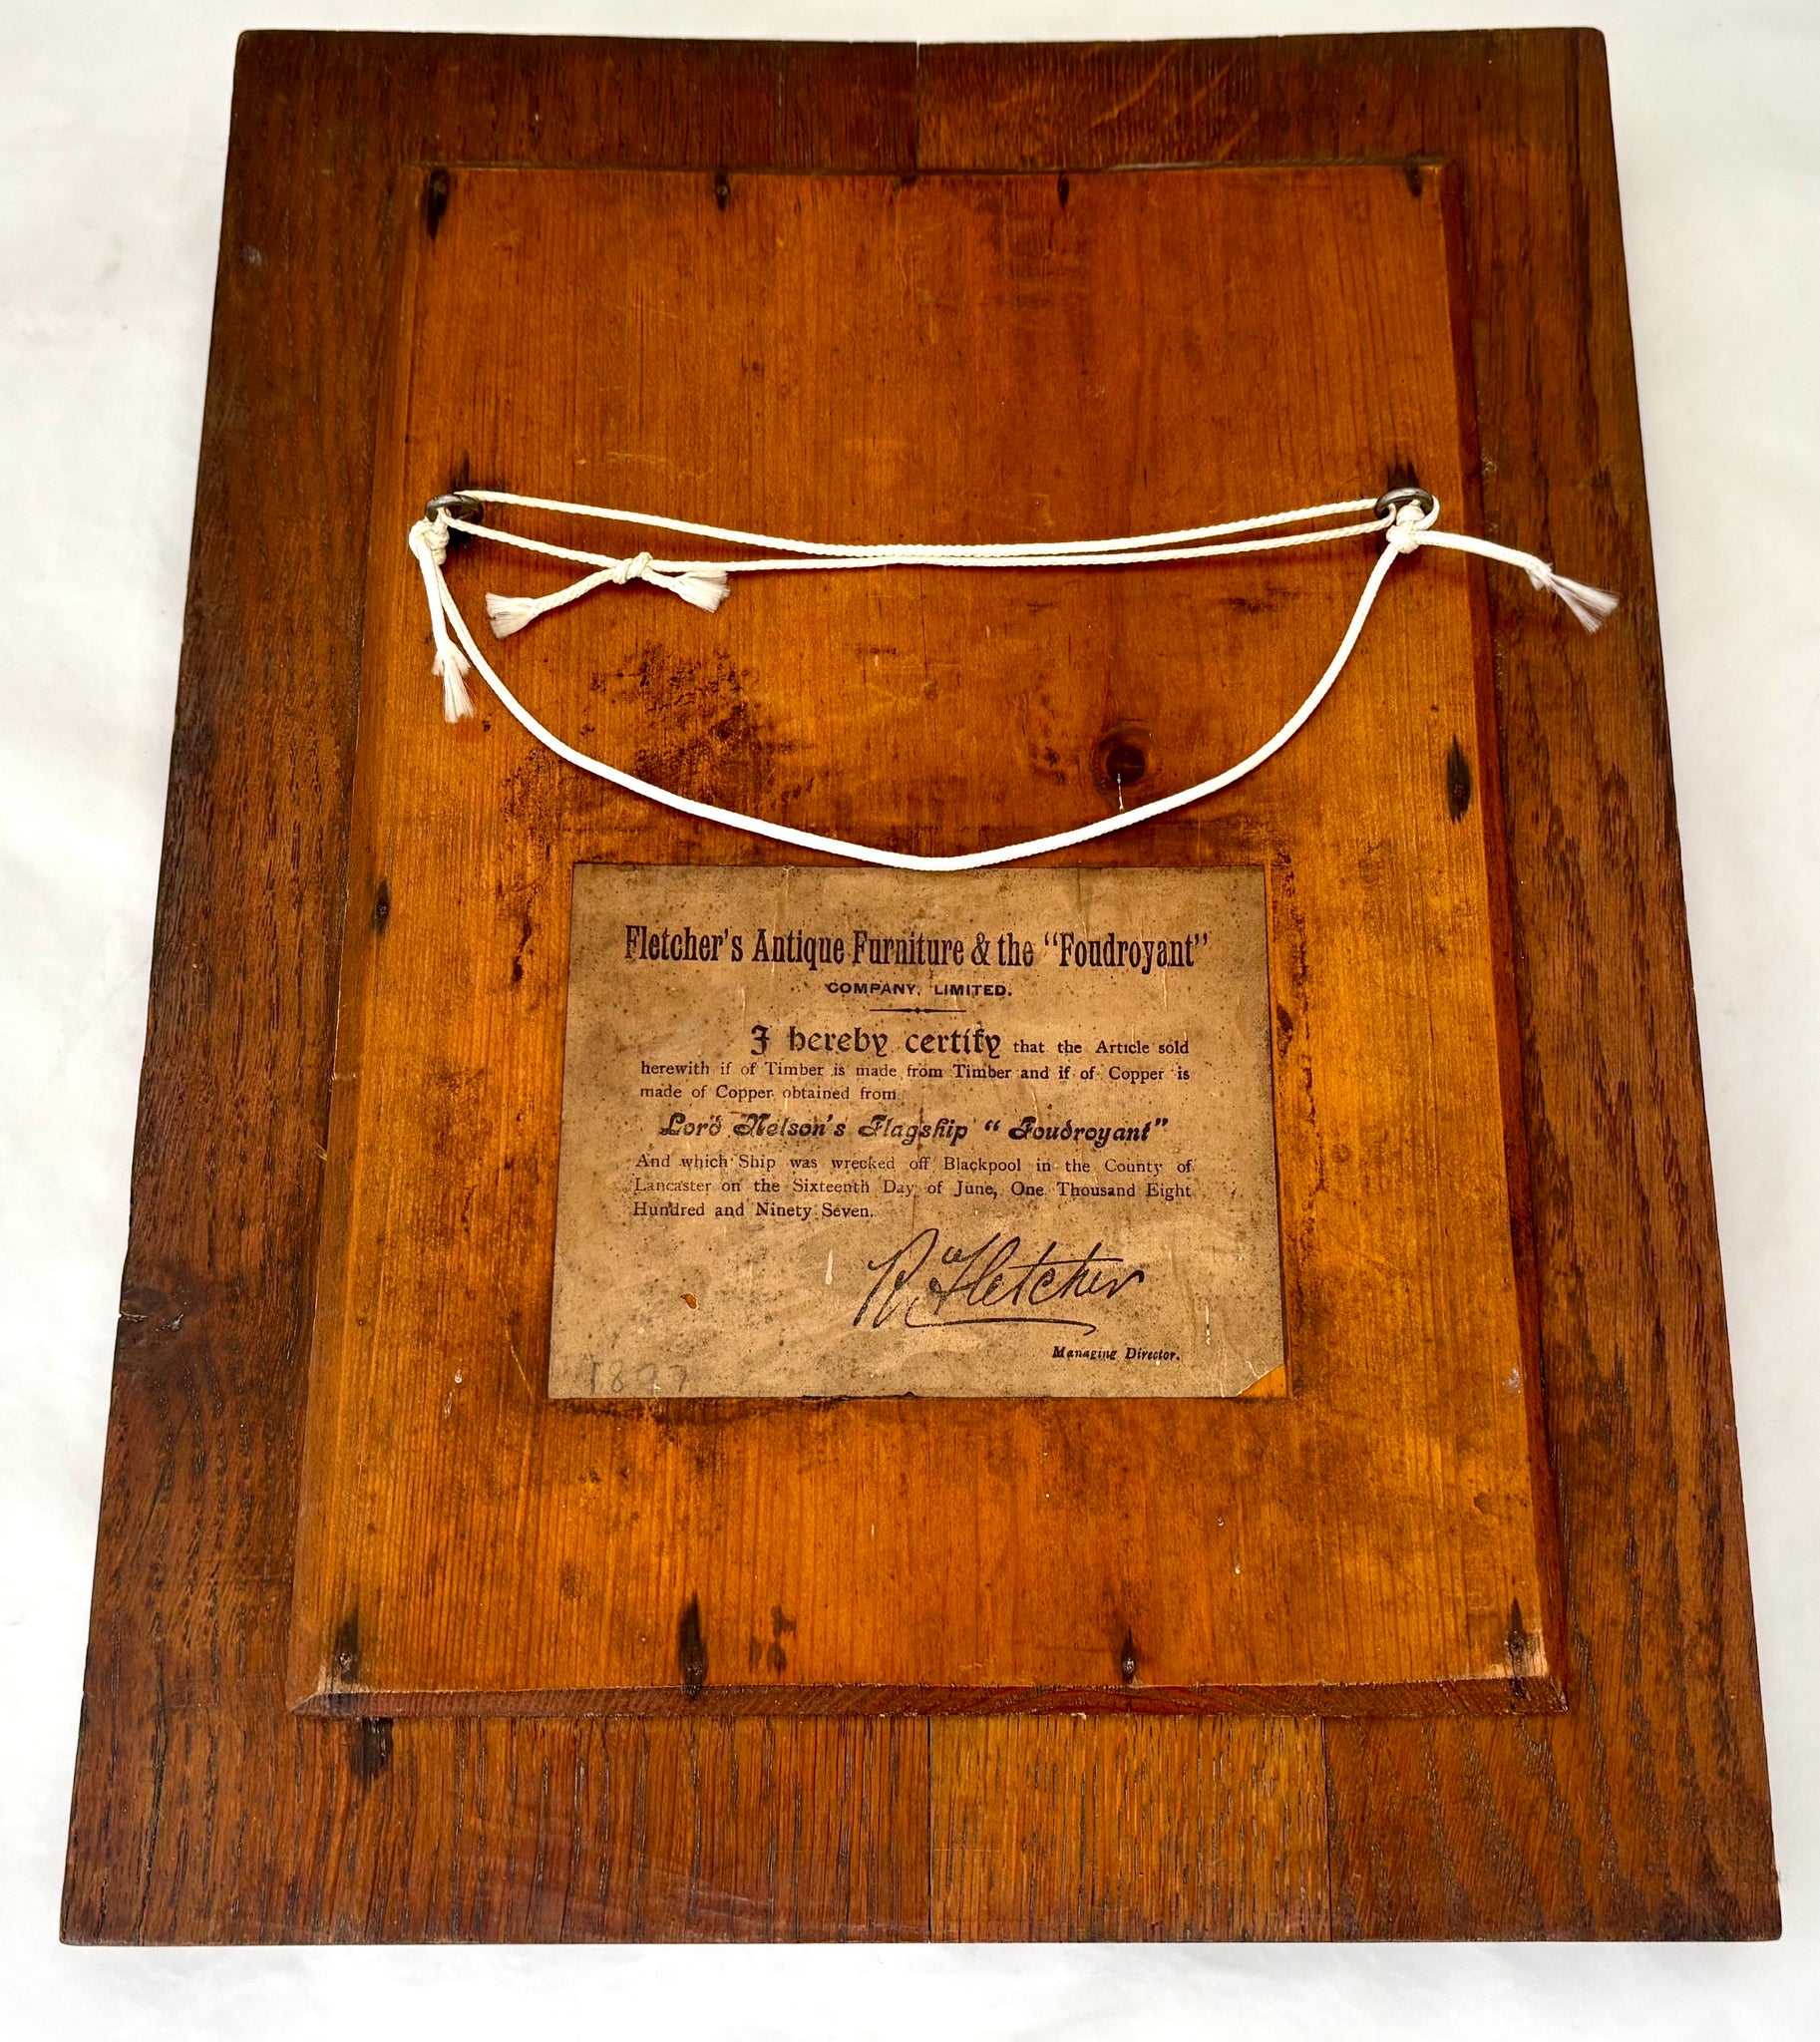 Fletcher's Antique Furniture & the "Foudroyant"
COMPANY, LIMITED.
I hereby certify that the Article sold
herewith if of Timber is made from Timber and if of Copper is
made of Copper obtained from
Lord Nelson's Flagship "Foudroyant"
And which Ship was wrecked off Blackpool in the County of
Lancaster on the Sixteenth Day of June, One Thousand Eight
Hundred and Ninety Seven.
R. Fletcher
Managing Director.
1897